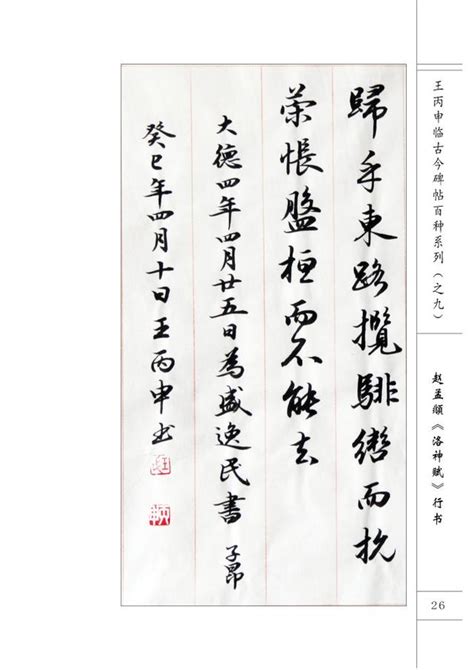 王丙申临古今碑帖百种系列（之九）
赵孟頫《洛神赋》行书
26
歸乎東路攬騑轡而抗
策悵盤桓而不能去
大德四年四月廿五日為盛逸民書 子昂
癸巳年四月十日王丙申书